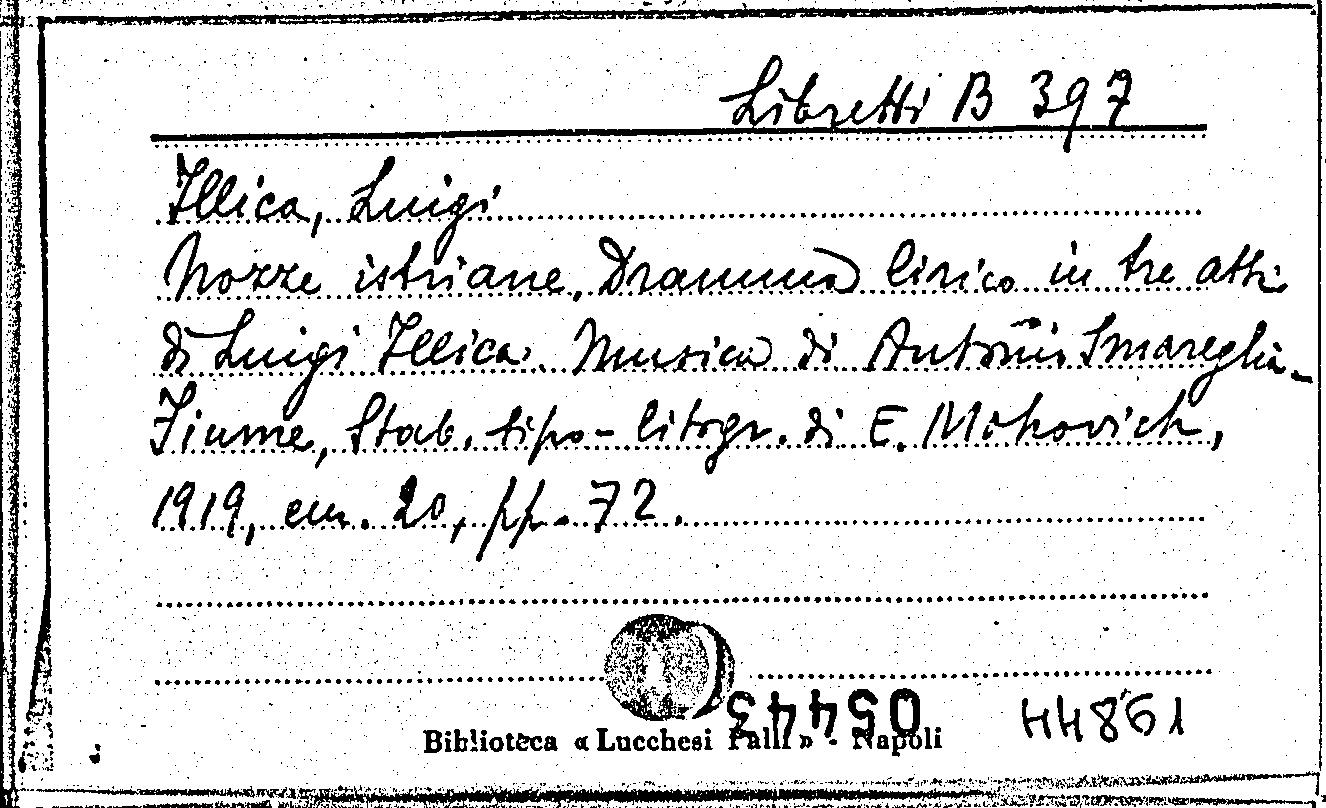 Libretti B 397
Illica, Luigi
Nozze istriane. Dramma lirico in tre atti
di Luigi Illica. Musica di Antonio Smareglia-
Fiume, Stab. tipo-litogr. di E. Mohovich,
1919, cm. 20, pp. 72.
05443
44861
Biblioteca « Lucchesi Palli » - Napoli